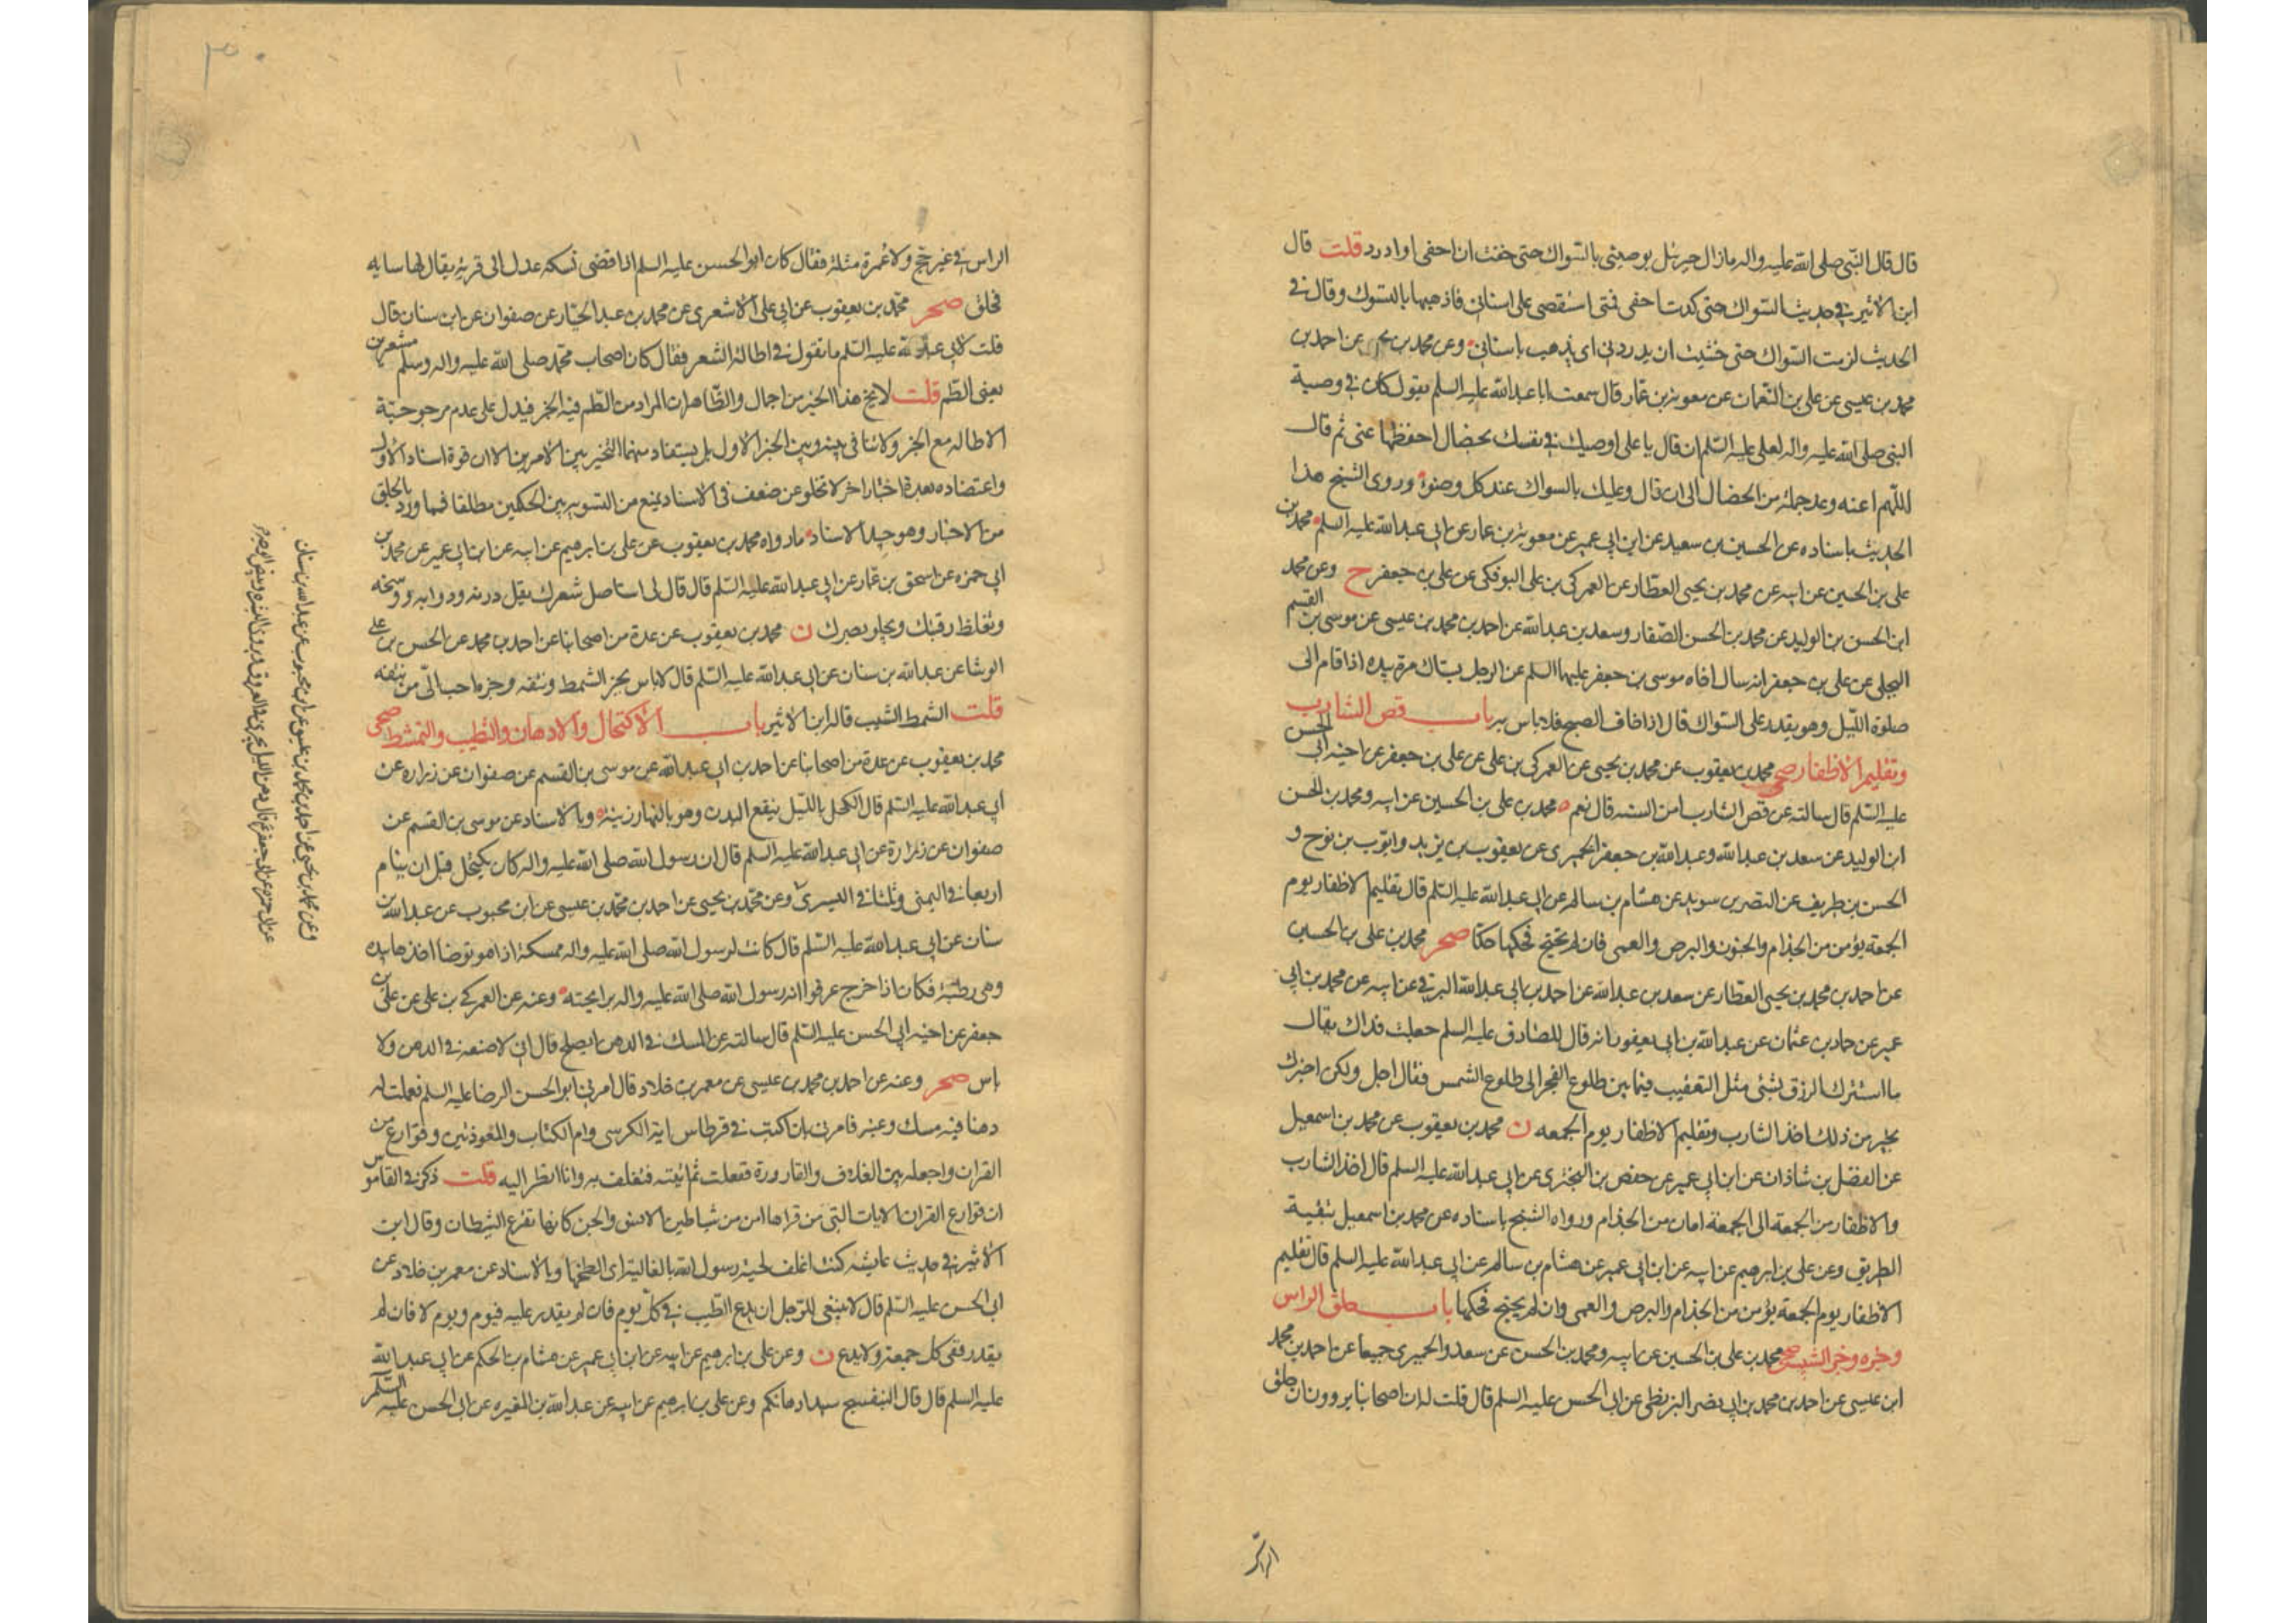 قال قال النبي صلى الله عليه واله مازال جبرئيل يوصيني بالسواك حتى خفت ان احفى او ادرد قلت قال
ابن الاثير في حديث السواك حتى كدت احفى فمي استقصى على اسناني فاذهبها بالتسوك وقال في
الحديث لزمت السواك حتى خشيت ان يدردني اى يذهب باسناني وعن محمد بن يحيى عن احمد بن
محمد بن عيسى عن على بن النعمان عن معوية بن عمار قال سمعت ابا عبد الله عليه السلم يقول كان في وصية
النبي صلى الله عليه واله لعلى عليه السلم ان قال يا على اوصيك في نفسك بخصال احفظها عنى ثم قال
اللهم اعنه وعد جملة من الخصال الى ان قال وعليك بالسواك عند كل وضوء وروى الشيخ هذا
الحديث باسناده عن الحسين بن سعيد عن ابن ابي عمير عن معوية بن عمار عن ابي عبد الله عليه السلم محمد بن
على بن الحسين عن ابيه عن محمد بن يحيى العطار عن العمركى بن على البوفكى عن على بن جعفر ح وعن محمد
ابن الحسن بن الوليد عن محمد بن الحسن الصفار وسعد بن عبد الله عن احمد بن محمد بن عيسى عن موسى بن القسم
البجلى عن على بن جعفر انه سال اخاه موسى بن جعفر عليهما السلم عن الرجل يستاك مرة بيده اذا قام الى
صلوة الليل وهو يقدر على السواك قال اذا خاف الصبح فلا باس به باب قص الشارب
وتقليم الاظفار صحى محمد بن يعقوب عن محمد بن يحيى عن العمركى بن على عن على بن جعفر عن اخيه ابى الحسن
عليه السلم قال سالته عن قص الشارب امن السنه قال نعم محمد بن على بن الحسين عن ابيه ومحمد بن الحسن
ابن الوليد عن سعد بن عبد الله وعبد الله بن جعفر الحميرى عن يعقوب بن يزيد وايوب بن نوح و
الحسن بن ظريف عن النضر بن سويد عن هشام بن سالم عن ابى عبد الله عليه السلم قال تقليم الاظفار يوم
الجمعة يؤمن من الجذام والجنون والبرص والعمى فان لم تحتج فحكها حكا صحر محمد بن على بن الحسين
عن احمد بن محمد بن يحيى العطار عن سعد بن عبد الله عن احمد بن ابى عبد الله البرقى عن ابيه عن محمد بن ابى
عمير عن حماد بن عثمان عن عبد الله بن ابى يعفور انه قال للصادق عليه السلم جعلت فداك يقال
ما استنزل الرزق بشئ مثل التعقيب فيما بين طلوع الفجر الى طلوع الشمس فقال اجل ولكن اخبرك
بخير من ذلك اخذ الشارب وتقليم الاظفار يوم الجمعه ن محمد بن يعقوب عن محمد بن اسمعيل
عن الفضل بن شاذان عن ابن ابى عمير عن حفص بن البخترى عن ابى عبد الله عليه السلم قال اخذ الشارب
والاظفار من الجمعة الى الجمعة امان من الجذام ورواه الشيخ باسناده عن محمد بن اسمعيل ببقية
الطريق وعن على بن ابرهيم عن ابيه عن ابن ابى عمير عن هشام بن سالم عن ابى عبد الله عليه السلم قال تقليم
الاظفار يوم الجمعة يؤمن من الجذام والبرص والعمى وان لم يحتج فحكها باب حلق الراس
وجزه وجز الشيب صحى محمد بن على بن الحسين عن ابيه ومحمد بن الحسن عن سعد والحميرى جميعا عن احمد بن محمد
ابن عيسى عن احمد بن محمد بن ابى نصر البزنطى عن ابى الحسن عليه السلم قال قلت له ان اصحابنا يروون ان حلق
الراس
الراس في غير حج ولا عمرة مثلة فقال كان ابو الحسن عليه السلم اذا قضى نسكه عدل الى قرية يقال لها سايه
فحلق صحر محمد بن يعقوب عن ابى على الاشعرى عن محمد بن عبد الجبار عن صفوان عن ابن سنان قال
قلت لابى عبد الله عليه السلم ما تقول في اطالة الشعر فقال كان اصحاب محمد صلى الله عليه واله وسلم مشعرين
يعنى الطم قلت لا يخ هذا الخبر من اجمال والظاهر ان المراد من الطم فيه الجز فيدل على عدم مرجوحية
الاطاله مع الجز ولا تنافى بينه وبين الخبر الاول بل يستفاد منهما التخيير بين الامرين الا ان قوة اسناد الاول
واعتضاده بعدة اخبار اخر لا تخلو عن ضعف في الاسناد يمنع من التسويه بين الحكمين مطلقا فما ورد بالحلق
من الاخبار وهو جيد الاسناد ما رواه محمد بن يعقوب عن على بن ابرهيم عن ابيه عن ابن ابى عمير عن محمد بن
ابى حمزه عن اسحق بن عمار عن ابى عبد الله عليه السلم قال قال لى استاصل شعرك يقل درنه ودوابه ووسخه
وتغلظ رقبتك ويجلو بصرك ن محمد بن يعقوب عن عدة من اصحابنا عن احمد بن محمد عن الحسن بن على
الوشا عن عبد الله بن سنان عن ابى عبد الله عليه السلم قال لا باس بجز الشمط ونتفه وجزه احب الى من نتفه
قلت الشمط الشيب قاله ابن الاثير باب الاكتحال والادهان والتطيب والتمشط صحى
محمد بن يعقوب عن عدة من اصحابنا عن احمد بن ابى عبد الله عن موسى بن القسم عن صفوان عن زراره عن
ابى عبد الله عليه السلم قال الكحل بالليل ينفع البدن وهو بالنهار زينة وبالاسناد عن موسى بن القسم عن
صفوان عن زرارة عن ابى عبد الله عليه السلم قال ان رسول الله صلى الله عليه واله كان يكتحل قبل ان ينام
اربعا في اليمنى وثلثا في اليسرى وعن محمد بن يحيى عن احمد بن محمد بن عيسى عن ابن محبوب عن عبد الله بن
سنان عن ابى عبد الله عليه السلم قال كانت لرسول الله صلى الله عليه واله ممسكة اذا هو توضا اخذها بيده
وهى رطبة فكان اذا خرج عرفوا انه رسول الله صلى الله عليه واله برايحته وعنه عن العمركى بن على عن على بن
جعفر عن اخيه ابى الحسن عليه السلم قال سالته عن المسك في الدهن ايصلح قال انى لاصنعه في الدهن ولا
باس صحر وعنه عن احمد بن محمد بن عيسى عن معمر بن خلاد قال امرنى ابو الحسن الرضا عليه السلم فعملت له
دهنا فيه مسك وعنبر فامرنى بان اكتب في قرطاس اية الكرسى وام الكتاب والمعوذتين وقوارع من
القران واجعله بين الغلاف والقارورة ففعلت ثم اتيته فتغلف به وانا انظر اليه قلت ذكر في القاموس
ان قوارع القران الايات التى من قراها امن من شياطين الانس والجن كانها تقرع الشيطان وقال ابن
الاثير في حديث عايشه كنت اغلف لحية رسول الله بالغالية اى الطخها وبالاسناد عن معمر بن خلاد عن
ابى الحسن عليه السلم قال لا ينبغى للرجل ان يدع الطيب في كل يوم فان لم يقدر عليه فيوم ويوم لا فان لم
يقدر ففى كل جمعة ولا يدع ن وعن على بن ابرهيم عن ابيه عن ابن ابى عمير عن هشام بن الحكم عن ابى عبد الله
عليه السلم قال قال البنفسج سيد ادهانكم وعن على بن ابرهيم عن ابيه عن عبد الله بن المغيره عن ابى الحسن عليه السلم
وعن محمد بن يحيى عن احمد بن محمد بن عيسى عن ابن محبوب عن عبد الله بن سنان
عن ابى حمزه عن ابى جعفر ع قال دهن الليل يجرى في العروق ويروى البشره ويبيض الوجه